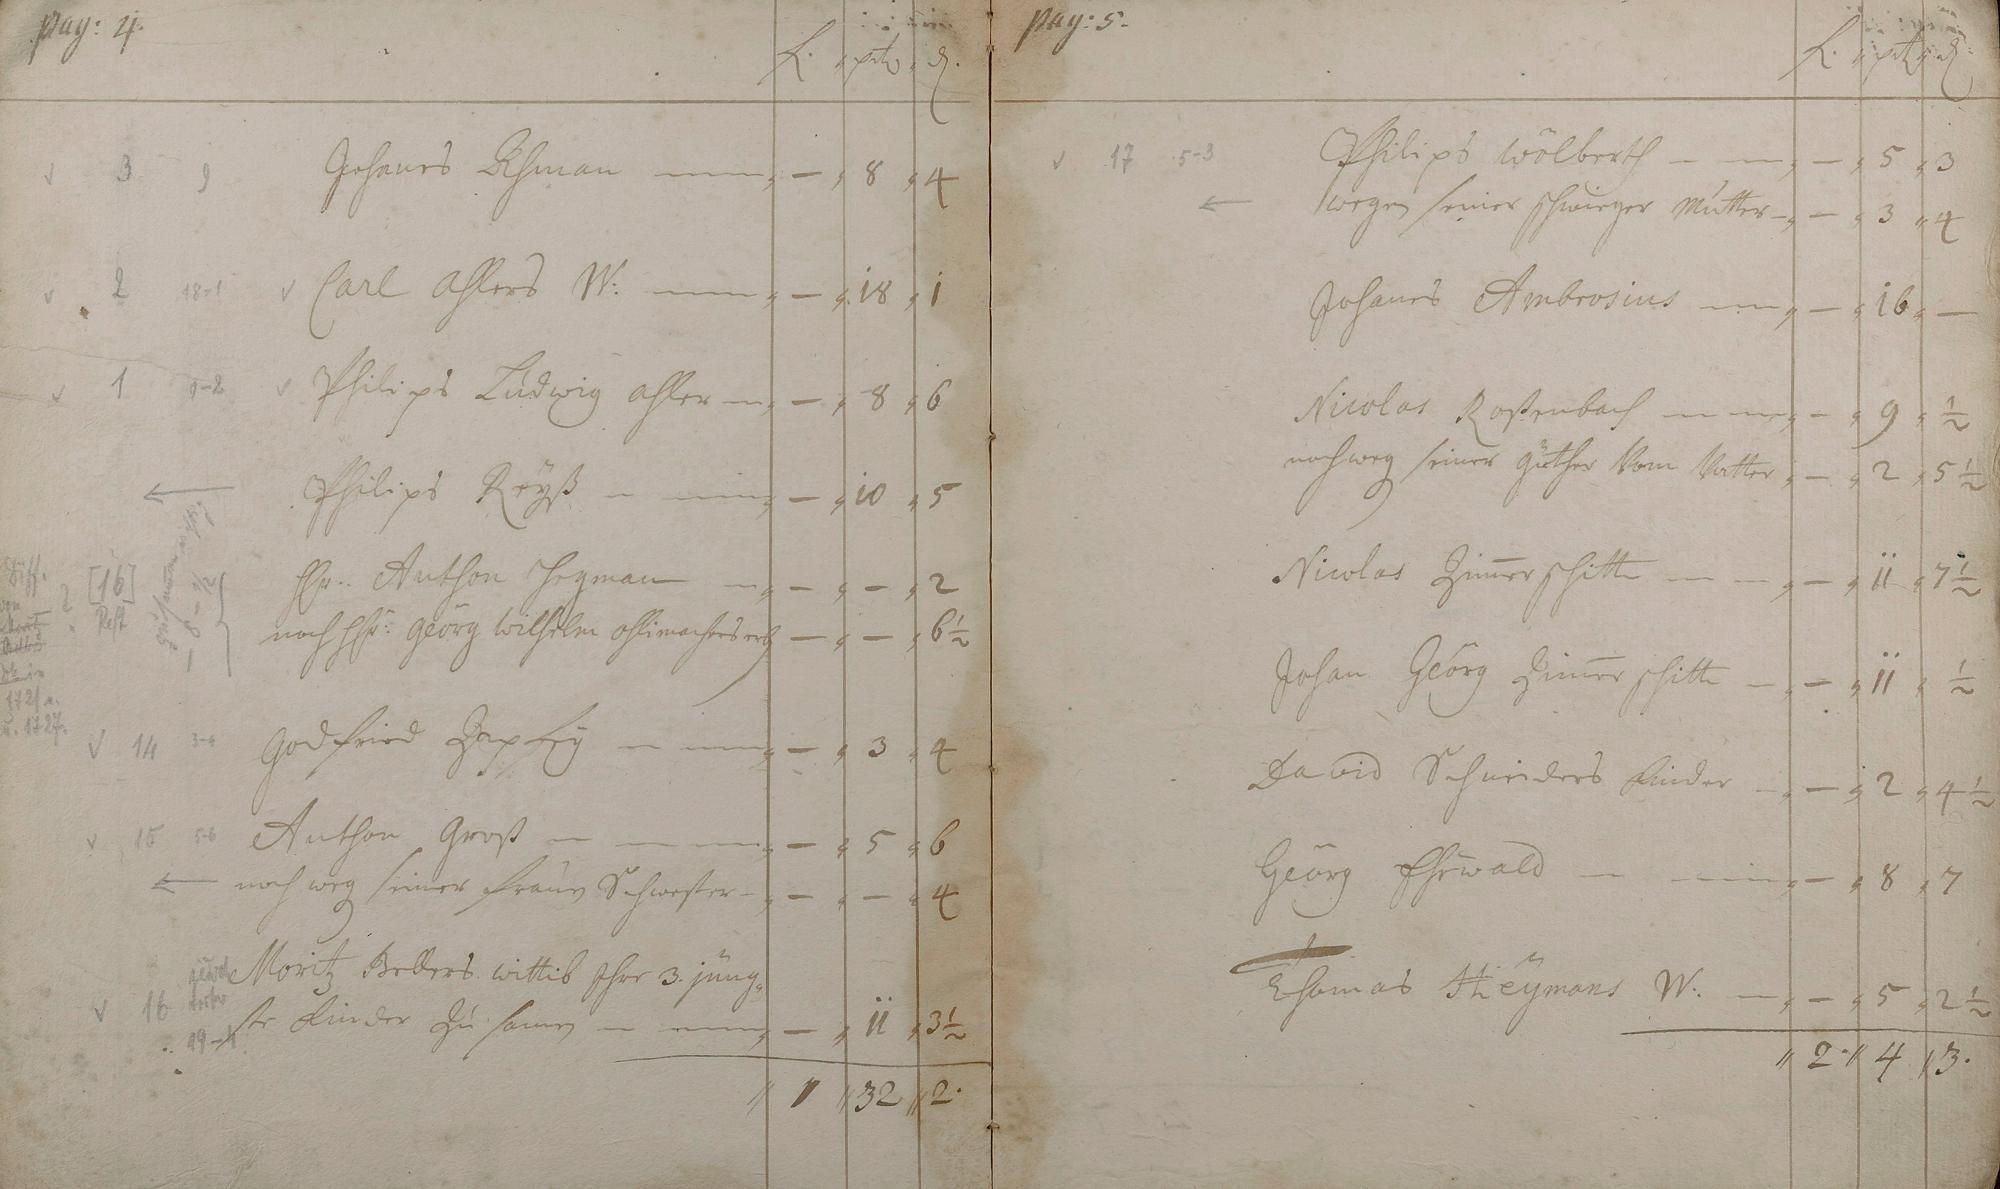 pag: 4.
fl. ptz d.
v 3 9 Johanes Ehman — 8 4
v 2 18-1 v Carl Ahlers W: — 18 1
v 1 9-2 v Philips Ludwig Ahler — 8 6
Philips Reyß — 10 5
[16] Hr: Anthon Hegman — — 2
Rest noch Hr: Georg Wilhelm — — 6½
1721 u.
u. 1727.
v 14 3-4 Godfried Zapfig — 3 4
v 15 5-6 Anthon Groß — 5 6
noch weg seiner frauen Schwester — — 4
Moritz Bellers wittib Ihre 3. jüng=
v 16 19-4 ste Kinder Zu samen — 11 3½
1 32 2.
pag: 5.
fl. ptz d
v 17 5-3 Philips Wölberth — 5 3
wegen seiner schwieger Mutter — 3 4
Johanes Ambrosius — 16 —
Nicolas Roßenbach — 9 ½
noch weg seiner güther Vom Vatter — 2 5½
Nicolas Zimerschitt — 11 7½
Johan Georg Zimerschitt — 11 ½
David Schneiders Kinder — 2 4½
Georg Ehrwald — 8 7
Thomas Heymans W: — 5 2½
2. 4 3.